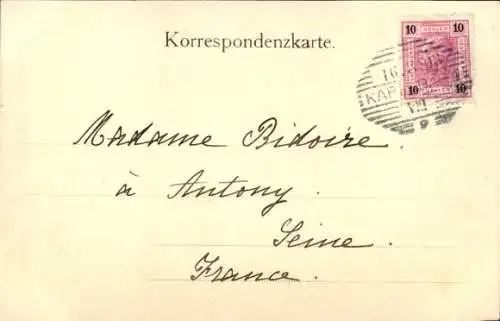 Korrespondenzkarte.
10 HELLER 10
10 10
16
KAR
Madame Bidoire.
à Antony.
Seine.
France.